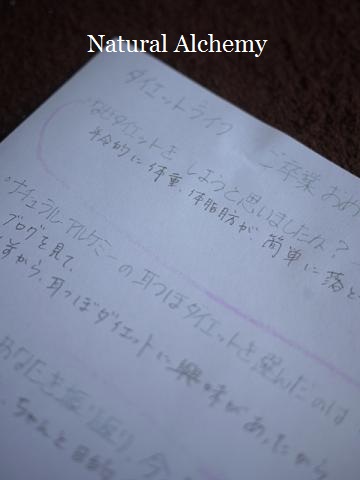 Natural Alchemy
ダイエットライフ ご卒業 おめ
なぜダイエットをしようと思いましたか?
年令的に体重、体脂肪が簡単に落と
・ナチュラルアルケミーの耳つぼダイエットを選んだのは
ブログを見て、
前から、耳つぼダイエットに興味があったから
振り返り、今
ちゃんと目的